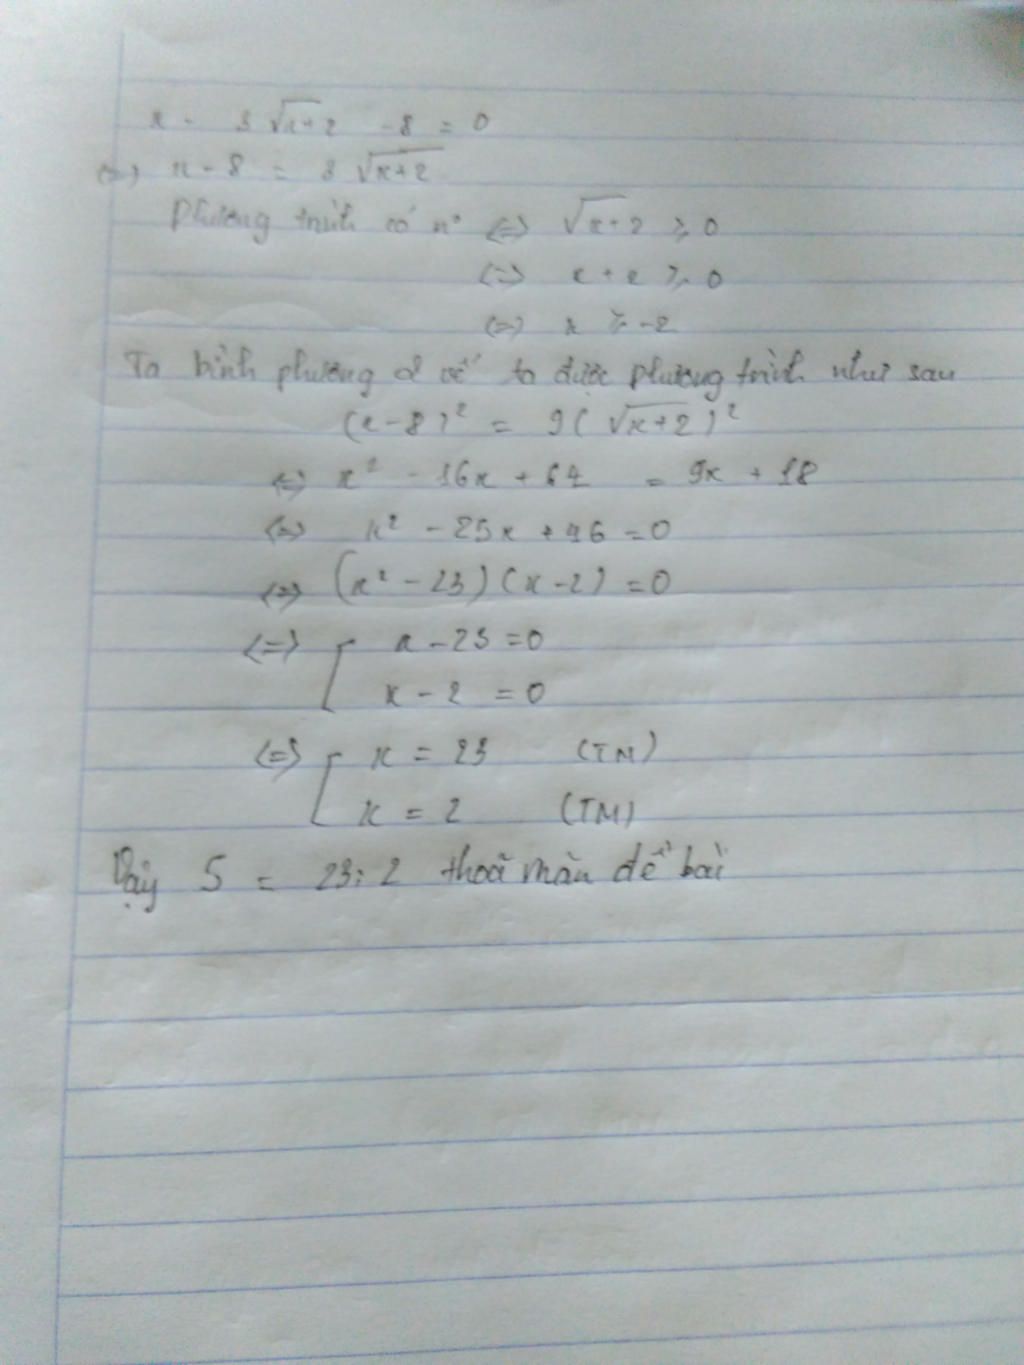 x - 3√x+2 - 8 = 0
<=> x - 8 = 3 √x+2
Phương trình có n° <=> √x+2 ⩾ 0
<=> x + 2 ⩾ 0
<=> x ⩾ -2
Ta bình phương 2 vế ta được phương trình như sau
(x-8)² = 9(√x+2)²
<=> x² - 16x + 64 = 9x + 18
<=> x² - 25x + 46 = 0
<=> (x² - 23)(x - 2) = 0
<=> [ x - 23 = 0
x - 2 = 0
<=> [ x = 23 (TM)
x = 2 (TM)
Vậy S = 23; 2 thoã mãn đề bài